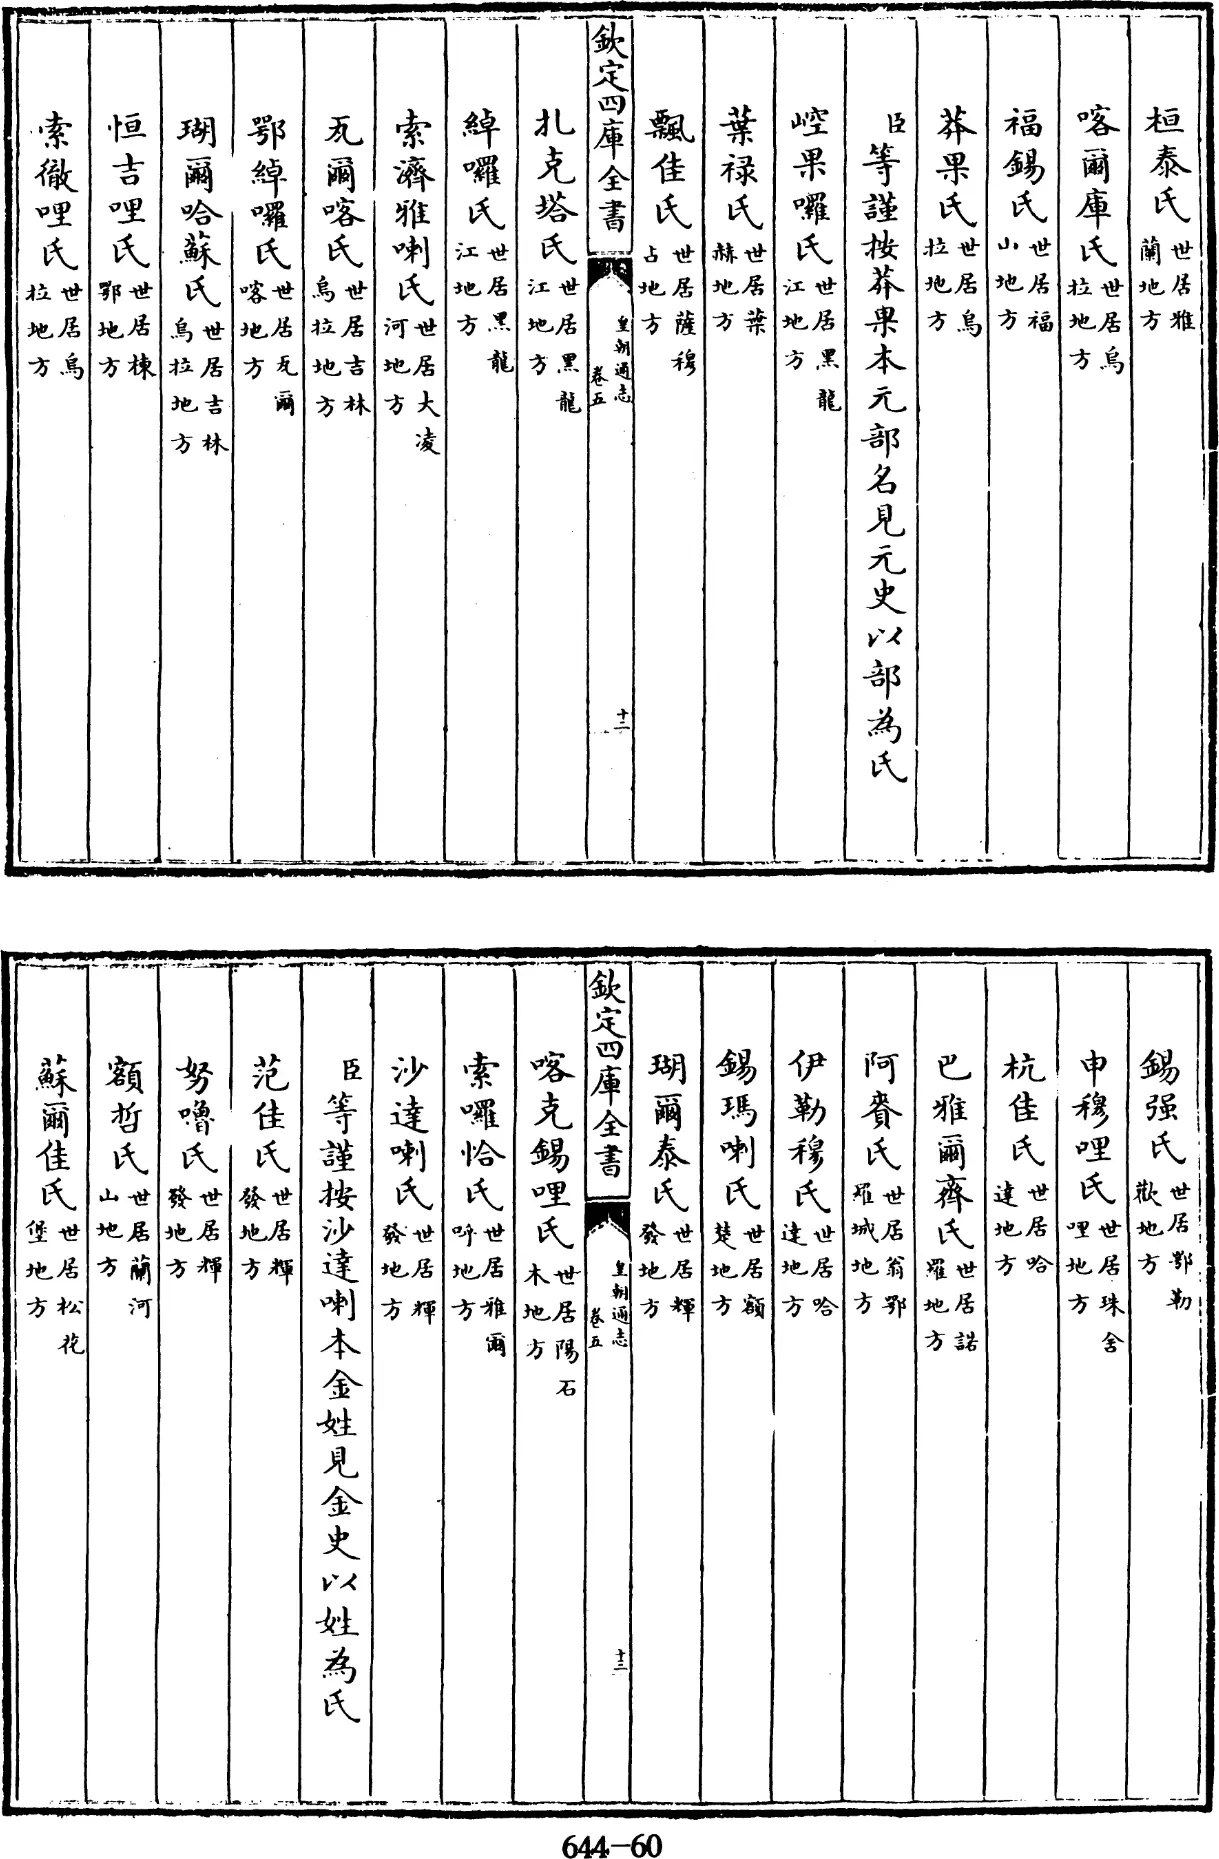 桓泰氏世居雅蘭地方
喀爾庫氏世居烏拉地方
福錫氏世居福山地方
莽果氏世居烏拉地方
臣等謹按莽果本元部名見元史以部為氏
崆果囉氏世居黑龍江地方
葉禄氏世居葉赫地方
飄佳氏世居薩穆占地方
欽定四庫全書
皇朝通志
卷五
十二
扎克塔氏世居黑龍江地方
綽囉氏世居黑龍江地方
索濟雅喇氏世居大凌河地方
瓦爾喀氏世居吉林烏拉地方
鄂綽囉氏世居瓦爾喀地方
瑚爾哈蘇氏世居吉林烏拉地方
恒吉哩氏世居棟鄂地方
索徹哩氏世居烏拉地方
錫强氏世居鄂勒歡地方
申穆哩氏世居珠舍哩地方
杭佳氏世居哈達地方
巴雅爾齊氏世居諾羅地方
阿賚氏世居翁鄂羅城地方
伊勒穆氏世居哈達地方
錫瑪喇氏世居額楚地方
瑚爾泰氏世居輝發地方
欽定四庫全書
皇朝通志
卷五
十三
喀克錫哩氏世居陽石木地方
索囉恰氏世居雅爾呼地方
沙達喇氏世居輝發地方
臣等謹按沙達喇本金姓見金史以姓為氏
范佳氏世居輝發地方
努嚕氏世居輝發地方
額哲氏世居蘭河山地方
蘇爾佳氏世居松花堡地方
644-60